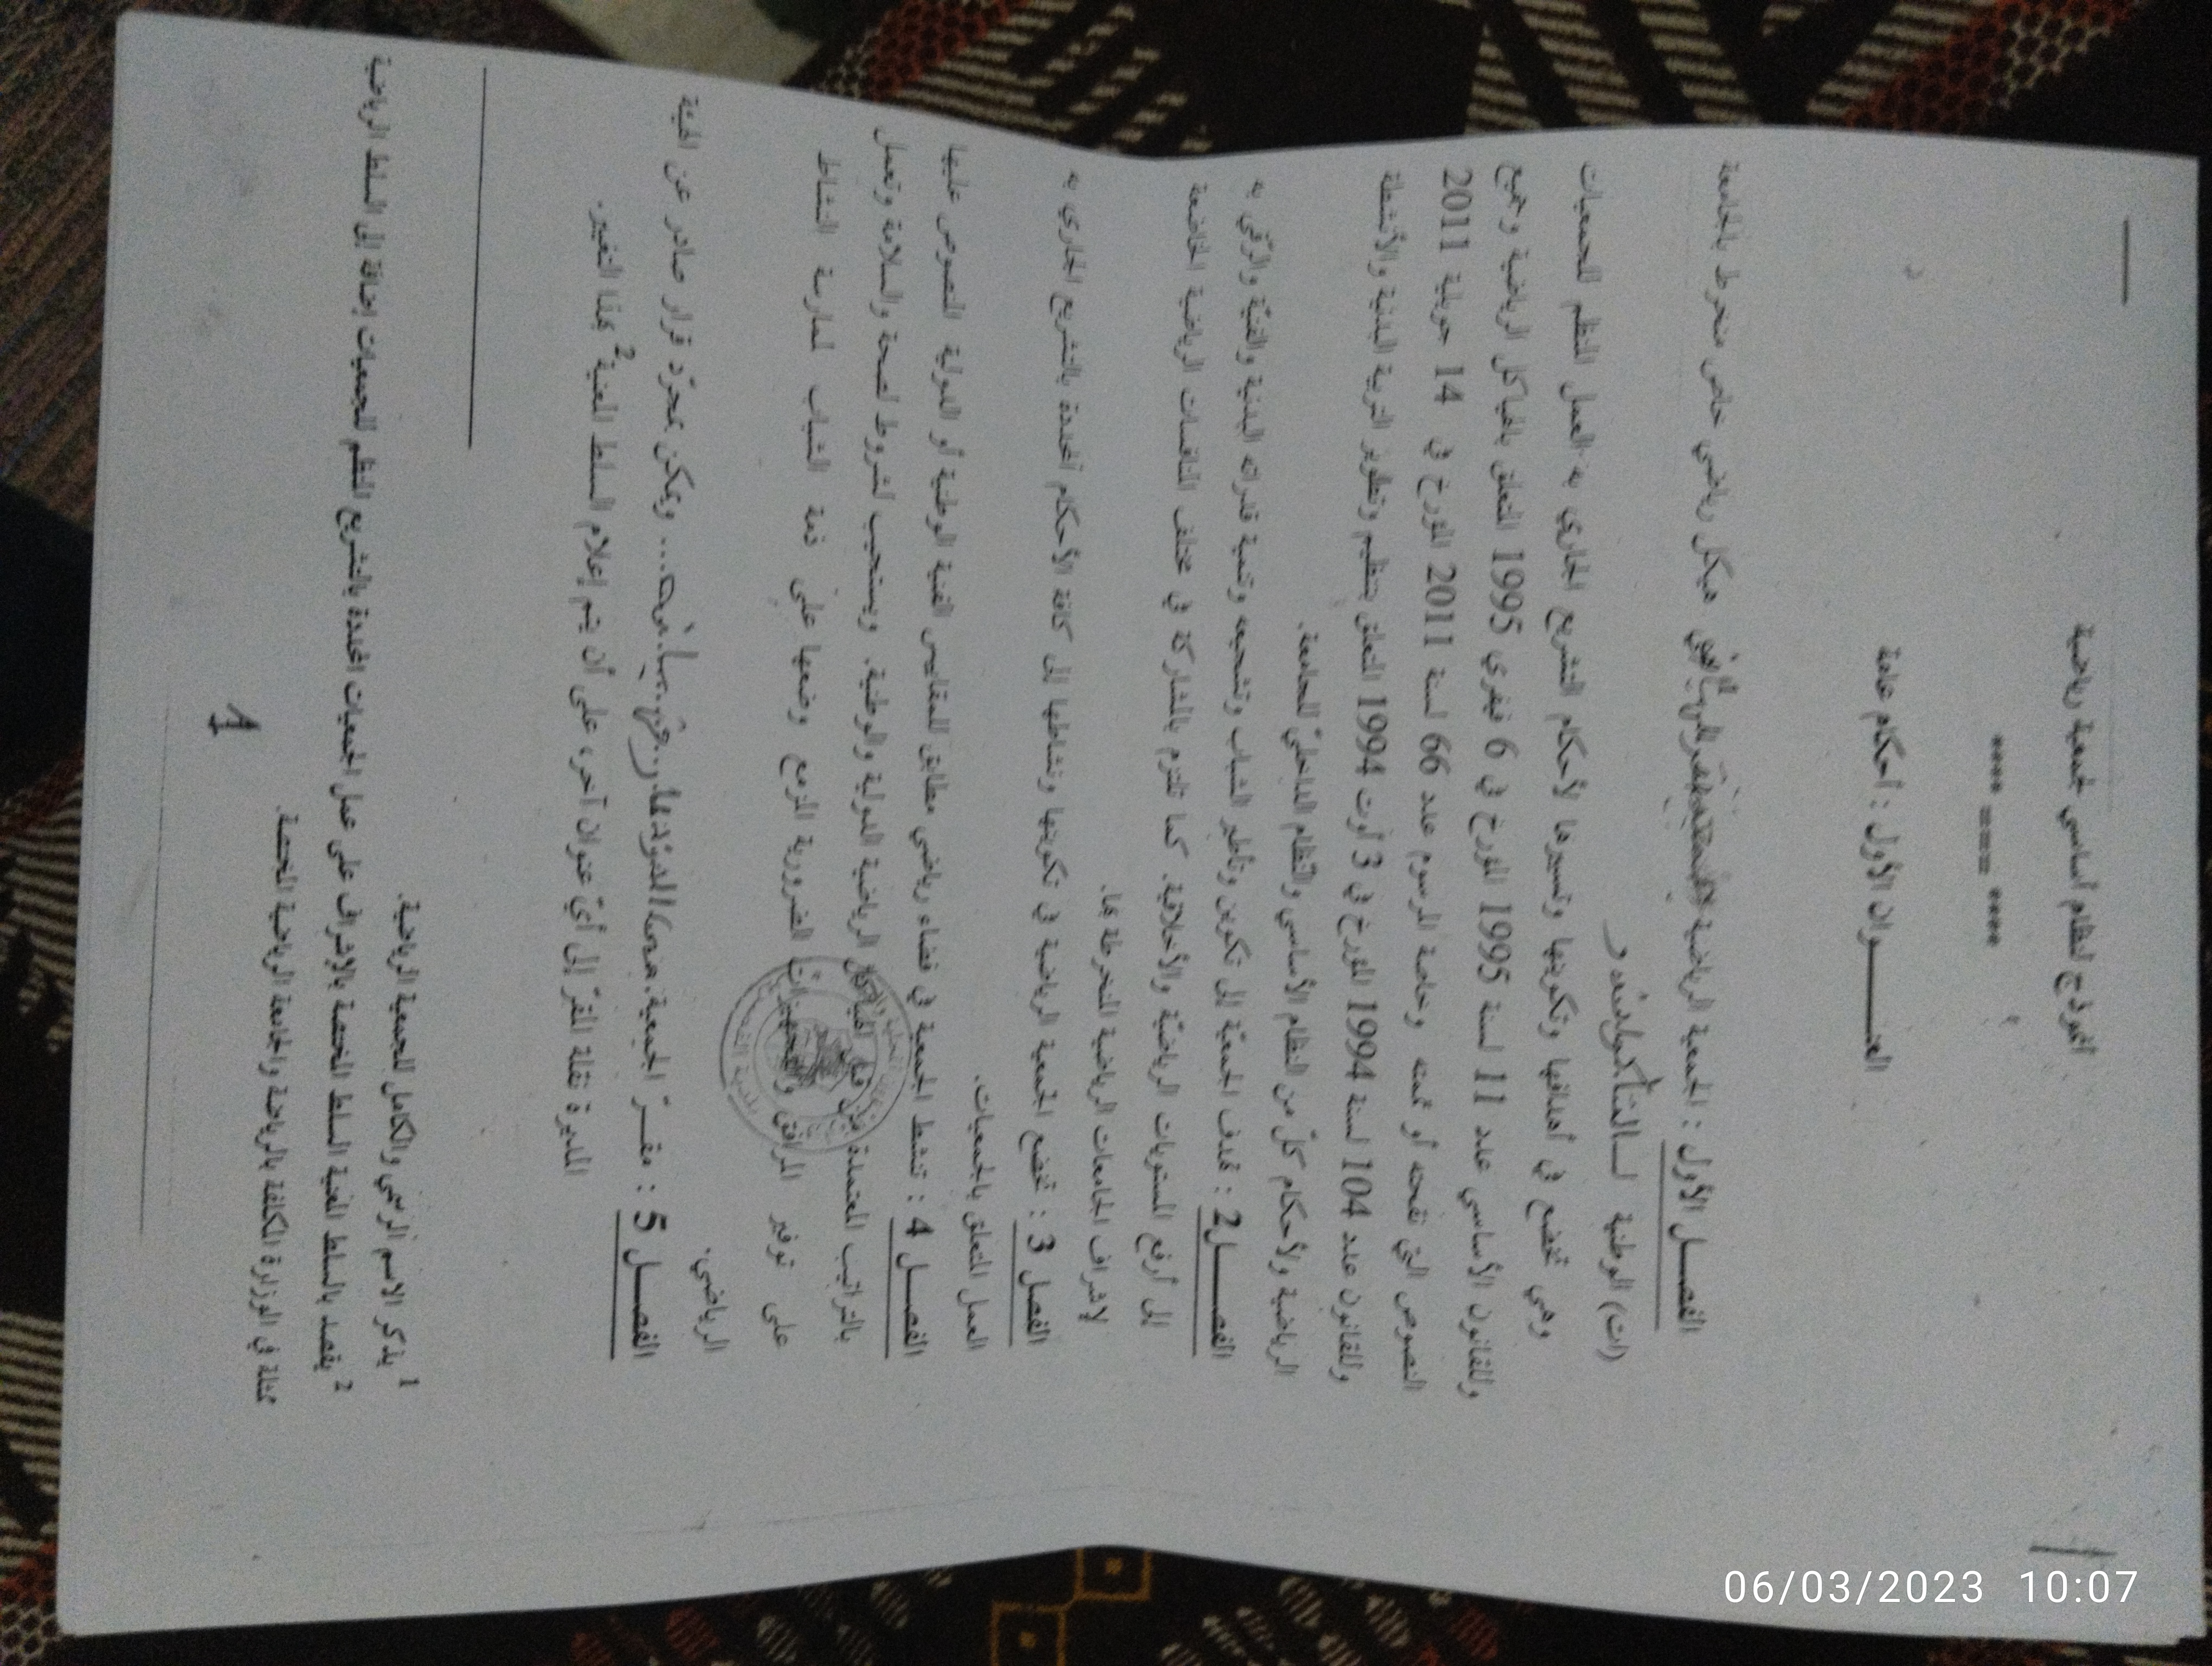 أنموذج لنظام أساسي لجمعية رياضية
**** === ****
العنـــــوان الأول : أحكام عامة
الفصـــل الأول : الجمعية الرياضية هيكل رياضي خاص منخرط بالجامعة
(ات) الوطنية لـ
وهي تخضع في أهدافها وتكوينها وتسييرها لأحكام التشريع الجاري به العمل المنظم للجمعيات
وللقانون الأساسي عدد 11 لسنة 1995 المؤرخ في 6 فيفري 1995 المتعلق بالهياكل الرياضية وجميع
النصوص التي نقحته أو تممته وخاصة المرسوم عدد 66 لسنة 2011 المؤرخ في 14 جويلية 2011
وللقانون عدد 104 لسنة 1994 المؤرخ في 3 أوت 1994 المتعلق بتنظيم وتطوير التربية البدنية والأنشطة
الرياضية ولأحكام كلّ من النظام الأساسي والنّظام الداخليّ للجامعة.
الفصــــل2 : تهدف الجمعيّة إلى تكوين وتأطير الشباب وتشجيعه وتنمية قدراته البدنية والفنيّة والرّقي به
إلى أرفع المستويات الرياضيّة والأخلاقية. كما تلتزم بالمشاركة في مختلف المنافسات الرياضية الخاضعة
لإشراف الجامعات الرياضية المنخرطة بها.
الفصل 3 : تخضع الجمعية الرياضية في تكوينها ونشاطها إلى كافة الأحكام المحددة بالتشريع الجاري به
العمل المتعلق بالجمعيات.
الفصـــل 4 : تنشط الجمعية في فضاء رياضي مطابق للمقاييس الفنية الوطنية أو الدولية المنصوص عليها
بالتراتيب المعتمدة من قبل الهياكل الرياضية الدولية والوطنية. ويستجيب لشروط الصحة والسلامة وتعمل
على توفير المرافق والتجهيزات الضرورية المزمع وضعها على ذمة الشباب لممارسة النشاط
الرياضي.
الفصـــل 5 : مقـــرّ الجمعية: ... ويمكن بمجرّد قرار صادر عن الهيئة
المديرة نقلة المقرّ إلى أيّ عنوان آخر، على أن يتم إعلام السلط المعنية2 بهذا التغيير.
1 يذكر الاسم الرسمي والكامل للجمعية الرياضية.
2 يقصد بالسلط المعنية السلط المختصة بالإشراف على عمل الجمعيات المحددة بالتشريع المنظم للجمعيات إضافة إلى السلط الرياضية
ممثلة في الوزارة المكلفة بالرياضة والجامعة الرياضية المختصة.
1
06/03/2023 10:07